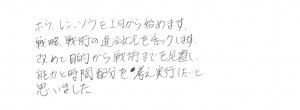 ホウ、レン、ソウを上司から始めます。
戦略、戦術の進捗状況をチェックします。
改めて目的から戦術までを見直し、
能力と時間配分を考え実行したいと
思いました